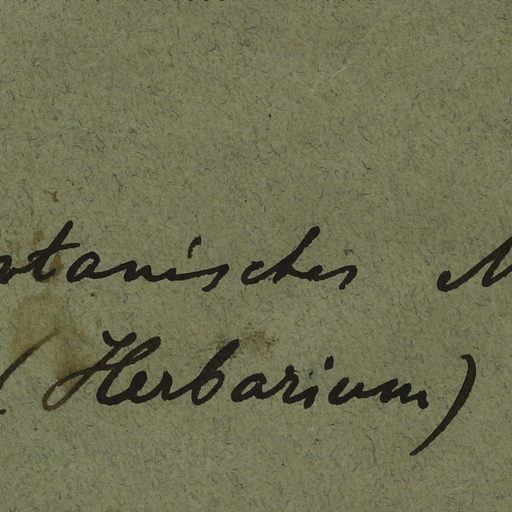 otanisches M
(Herbarium)